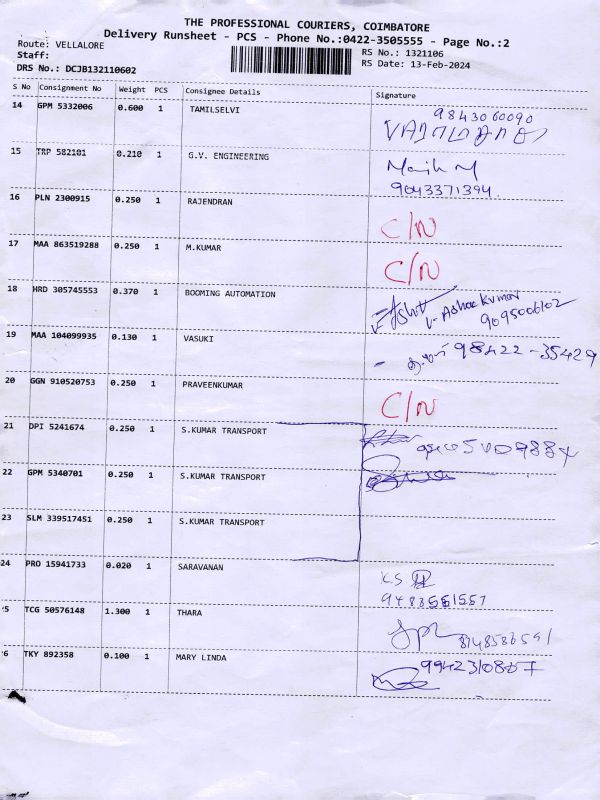 THE PROFESSIONAL COURIERS, COIMBATORE
Delivery Runsheet - PCS - Phone No.:0422-3505555 - Page No.:2
Route: VELLALORE
Staff:
DRS No.: DCJB132110602
RS No.: 1321106
RS Date: 13-Feb-2024
S No Consignment No Weight PCS Consignee Details Signature
14 GPM 5332006 0.600 1 TAMILSELVI 9843060090
15 TRP 582101 0.210 1 G.V. ENGINEERING
9043371394
16 PLN 2300915 0.250 1 RAJENDRAN C/N
17 MAA 863519288 0.250 1 M.KUMAR C/N
18 HRD 305745553 0.370 1 BOOMING AUTOMATION
V. Ashok Kumar
9095006102
19 MAA 104099935 0.130 1 VASUKI 98422-35429
20 GGN 910520753 0.250 1 PRAVEENKUMAR C/N
21 DPI 5241674 0.250 1 S.KUMAR TRANSPORT
22 GPM 5340701 0.250 1 S.KUMAR TRANSPORT
23 SLM 339517451 0.250 1 S.KUMAR TRANSPORT
24 PRO 15941733 0.020 1 SARAVANAN
25 TCG 50576148 1.300 1 THARA
26 TKY 892358 0.100 1 MARY LINDA